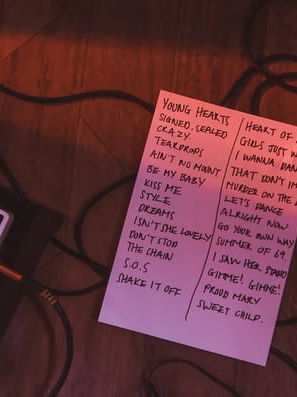 YOUNG HEARTS
SIGNED. SEALED
CRAZY
TEARDROPS
AIN'T NO MOUNT
BE MY BABY
KISS ME
STYLE
DREAMS
ISN'T SHE LOVELY
DON'T STOP
THE CHAIN
S.O.S
SHAKE IT OFF
HEART OF
GIRLS JUST W
I WANNA DAN
THAT DON'T IM
MURDER ON THE
LET'S DANCE
ALRIGHT NOW
GO YOUR OWN WAY
SUMMER OF 69
I SAW HER STAND
GIMME! GIMME!
PROUD MARY
SWEET CHILD.